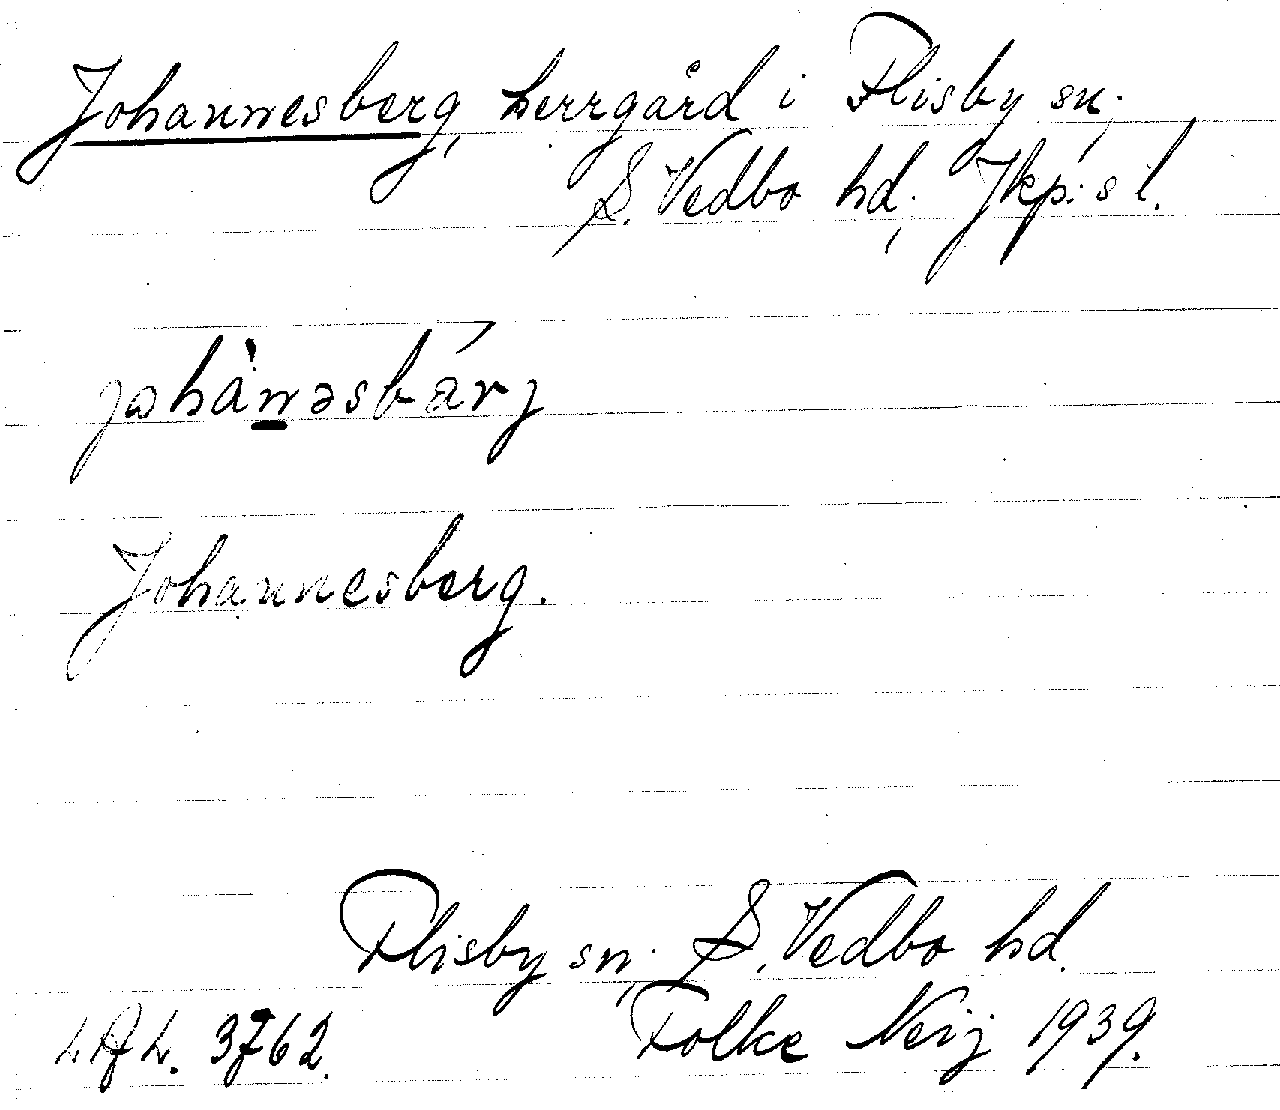 Johannesberg, herrgård i Flisby sn.,
S. Vedbo hd., Jkp:s l.
johànəsbárj
Johannesberg.
Flisby sn., S. Vedbo hd.
3762. Folke Neij 1939.